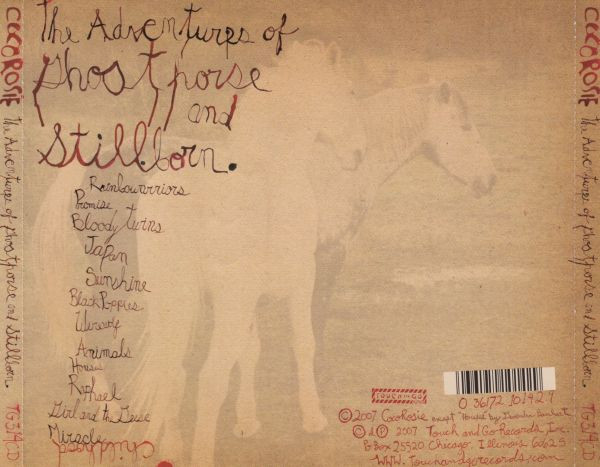 COCOROSIE The Adventures of Ghosthorse and Stillborn. TG314CD
The Adventures of
Ghosthorse
and
Stillborn.
Rainbowarriors
Promise
Bloody twins
Japan
Sunshine
Black Poppies
Werewolf
Animals
Houses
Raphael
Girl and the Geese
Miracle
childhood
TOUCH AND GO
0 36172 10192 7
© 2007 CocoRosie except "Houses" by Devendra Banhart
© & ℗ 2007 Touch and Go Records, Inc.
P.O. Box 25520 Chicago, Illinois 60625
www.touchandgorecords.com
COCOROSIE The Adventures of Ghosthorse and Stillborn. TG314CD